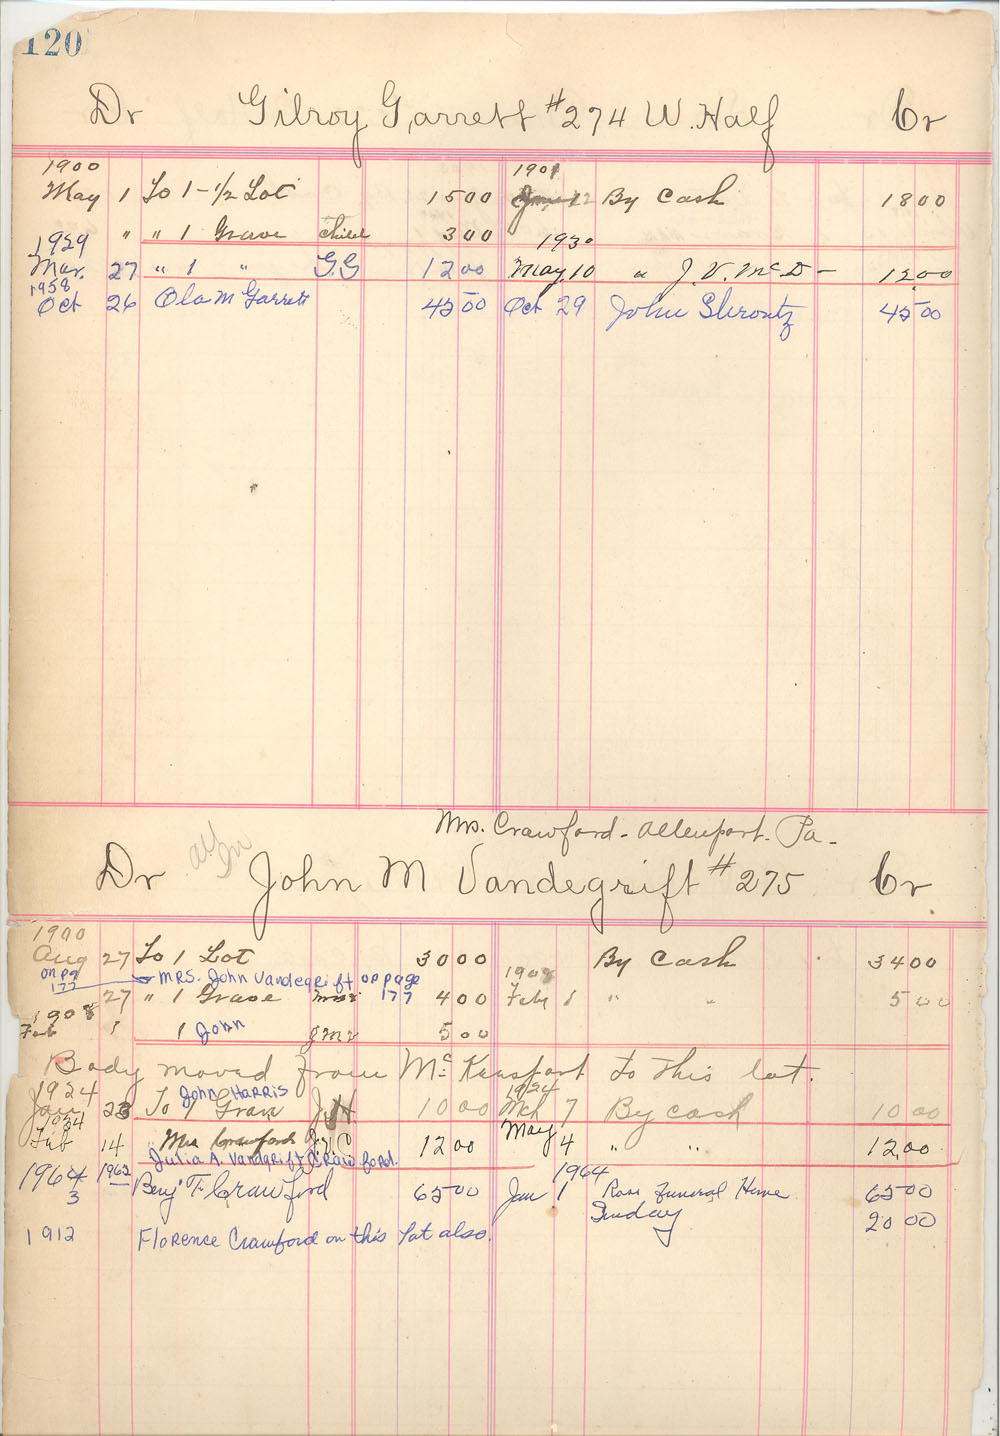 120
Dr Gilroy Garrett #274 W. Half Cr
1900 1901
May 1 To 1-1/2 Lot 1500 12 By Cash 1800
" " 1 Grave child 300
1929 1930
Mar. 27 " 1 " G.G 1200 May 10 " J. V. McD - 1200
1958
Oct 26 Ola M Garrett 4500 Oct 29 John Shrontz 4500
Mrs. Crawford - Allenport. Pa.
Dr John M Vandegrift #275 Cr
1900
Aug 27 To 1 Lot 3000 By Cash 3400
on pg 177 MRS. John Vandegrift on page 177
1908
27 " 1 Grave 400 Feb 1 " " 500
1908
Feb 1 1 John 500
Body moved from McKeesport to this lot.
1924 John HARRIS 1924
Jan 23 To 1 Grave J.H. 1000 Mch 7 By cash 1000
1934
Feb 14 " Mrs Crawford J. C 1200 May 4 " " 1200
Julia A. Vandgrift Crawford.
1964 1962 1964
3 Benj F. Crawford 6500 Jan 1 Rose Funeral Home 6500
Sunday 2000
1912 Florence Crawford on this Lot also.